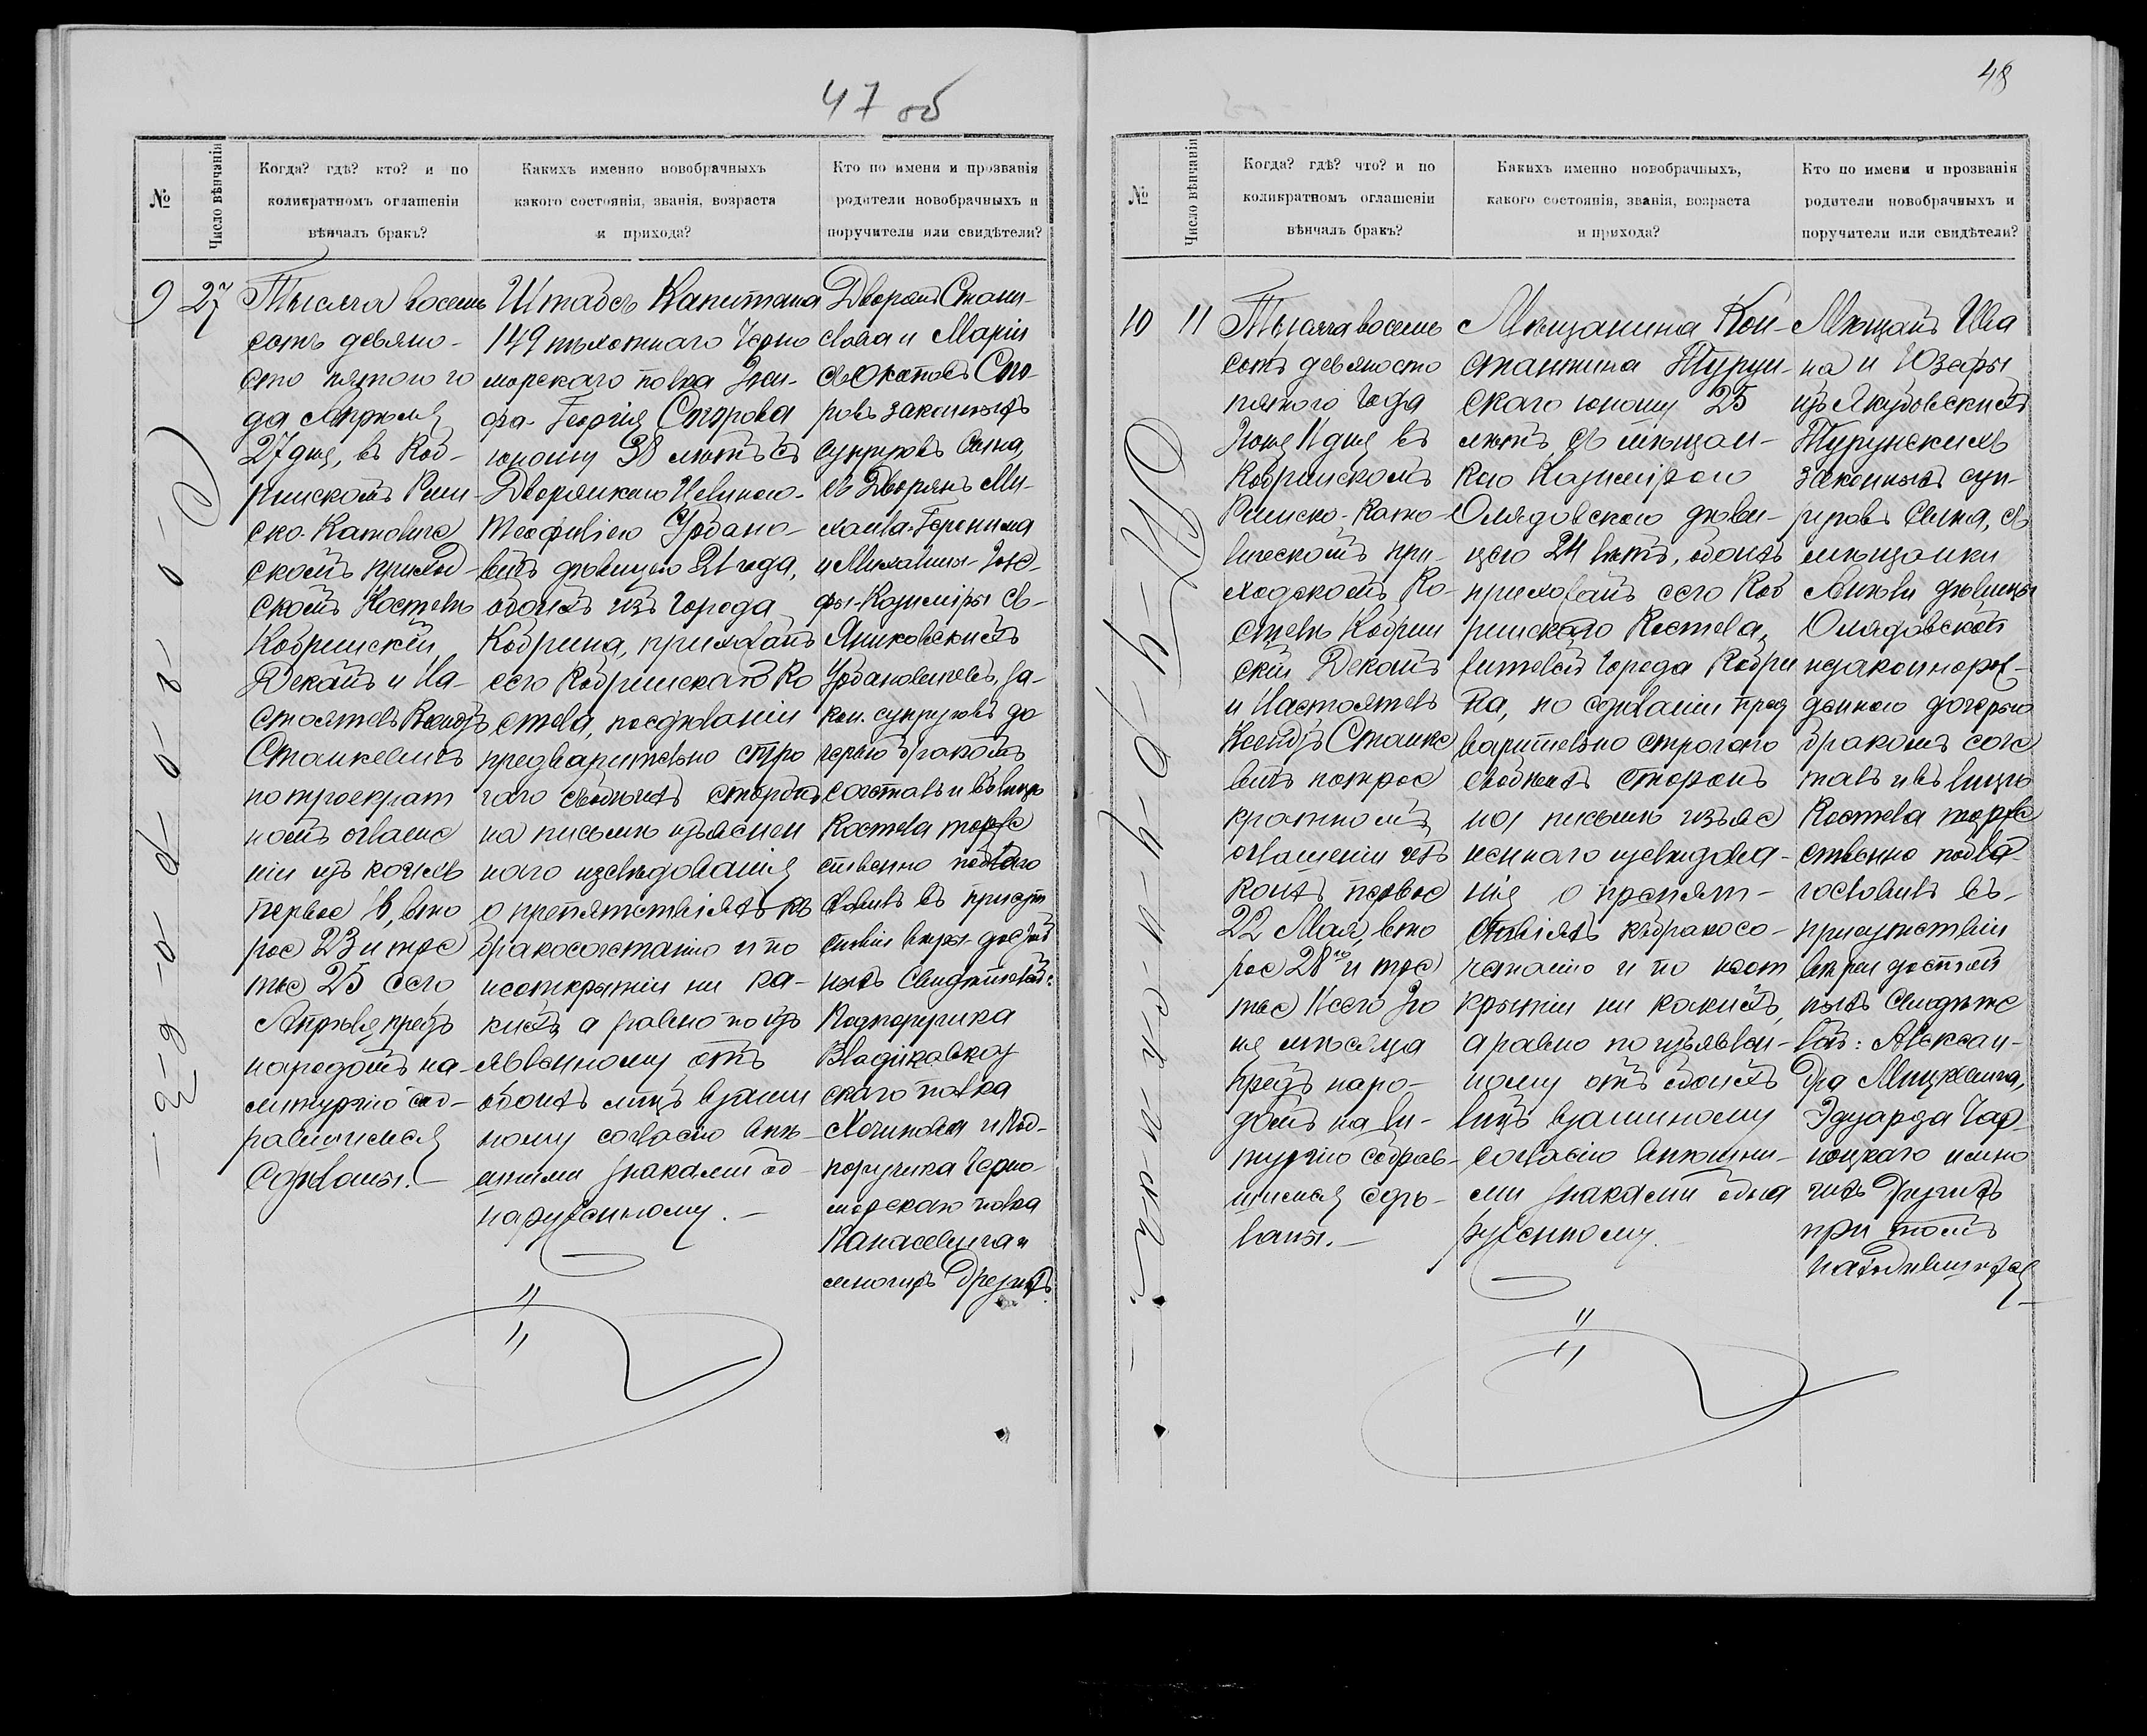 47 об
№
Число вѣнчанія
Когда? гдѣ? кто? и по
коликратномъ оглашеніи
вѣнчалъ бракъ?
Какихъ именно новобрачныхъ
какого состоянія, званія, возраста
и прихода?
Кто по имени и прозванія
родители новобрачныхъ и
поручители или свидѣтели?
9
27
Тысяча восемь
сотъ девяно-
сто пятого го
да Апрѣля
27 дня, въ Коб-
ринскомъ Рим-
ско-Католиче
скомъ приход-
скомъ Костелѣ
Кобринскій
Деканъ и На-
стоятель Ксендзъ
Станкевичъ
по троекрат
номъ оглаше
ніи изъ коихъ
первое 16, вто
рое 23 и тре
тье 25 сего
Апрѣля предъ
народомъ на
литургію соб-
равшимся
Сдѣланы.
Штабсъ Капитана
149 пѣхотнаго Черно
морскаго полка
Георгія Сѣрова
юношу 38 лѣтъ съ
Дворянкою
Теофилею Урбано-
вичъ дѣвицею 21 года,
обоихъ изъ города
Кобрина, прихожанъ
сего Кобринскаго Ко
стела, по сдѣланіи
предварительно стро
гаго съ обоихъ сторонъ
на письмѣ изъяснен
наго изслѣдованія
о препятствіяхъ къ
бракосочетанію и по
неоткрытіи ни ка-
кихъ а равно по изъ
явленному отъ
обоихъ лицъ взаим
ному согласію внѣ-
шними знаками об
наруженному.
Дворянъ Стани-
слава и Маріи
Сѣ-
ровъ законныхъ
супруговъ Сына,
съ Дворянъ Ми-
хаила-Геронима
и Михалины-Юзе-
фы-Казиміры съ
Янковскихъ
Урбановичевъ, за-
кон. супруговъ до
черью бракомъ
сочеталъ и въ лицѣ
Костела торже
ственно поблаго
словилъ въ присут
ствіи вѣры достой
ныхъ Свидѣтелей:
Подпоручика
Владикавказ
скаго полка
и Под-
поручика Черно-
морскаго полка
Панасевича и
многихъ другихъ
48
№
Число вѣнчанія
Когда? гдѣ? что? и по
коликратномъ оглашеніи
вѣнчалъ бракъ?
Какихъ именно новобрачныхъ,
какого состоянія, званія, возраста
и прихода?
Кто по имени и прозванія
родители новобрачныхъ и
поручители или свидѣтели?
10
11
Тысяча восемь
сотъ девяносто
пятого года
Іюня 11 дня въ
Кобринскомъ
Римско-Като-
лическомъ при-
ходскомъ Ко-
стелѣ Кобрин
скій Деканъ
и Настоятель
Ксендзъ Станке
вичъ по трое
кратномъ
оглашеніи изъ
коихъ первое
22 Мая, вто
рое 28го и тре
тье 11 сего Ію
ня мѣсяца
предъ наро-
домъ на ли-
тургію собрав-
шимся сдѣ-
ланы.
Мѣщанина Кон-
стантина Турун-
скаго юношу 25
лѣтъ съ мѣщан-
кою Казимірою
Олядовскою дѣви-
цею 24 лѣтъ, обоихъ
прихожанъ сего Коб
ринскаго Костела,
жителей города Кобри
на, по сдѣланіи пред
варительно строгаго
съ обоихъ сторонъ
на письмѣ изъяс
неннаго изслѣдова-
нія о препят-
ствіяхъ къ бракосо-
четанію и по неот
крытіи ни какихъ,
а равно по изъявлен-
ному отъ обоихъ
лицъ взаимному
согласію внѣшни-
ми знаками обна
руженному.
Мѣщанъ Ива
на и Юзефы
изъ Якубовскихъ
Турунскихъ
законныхъ суп-
руговъ Сына, съ
мѣщанки
дѣвицы
Олядовской
незаконнорож-
денною дочерью
бракомъ соче
талъ и въ лицѣ
Костела торже
ственно побла-
гословилъ въ
присутствіи
вѣры достой
ныхъ Свидѣте
лей: Алексан-
дра Мицкевича,
Эдуарда Чар-
ноцкаго и мно
гихъ другихъ
при томъ
находившихся